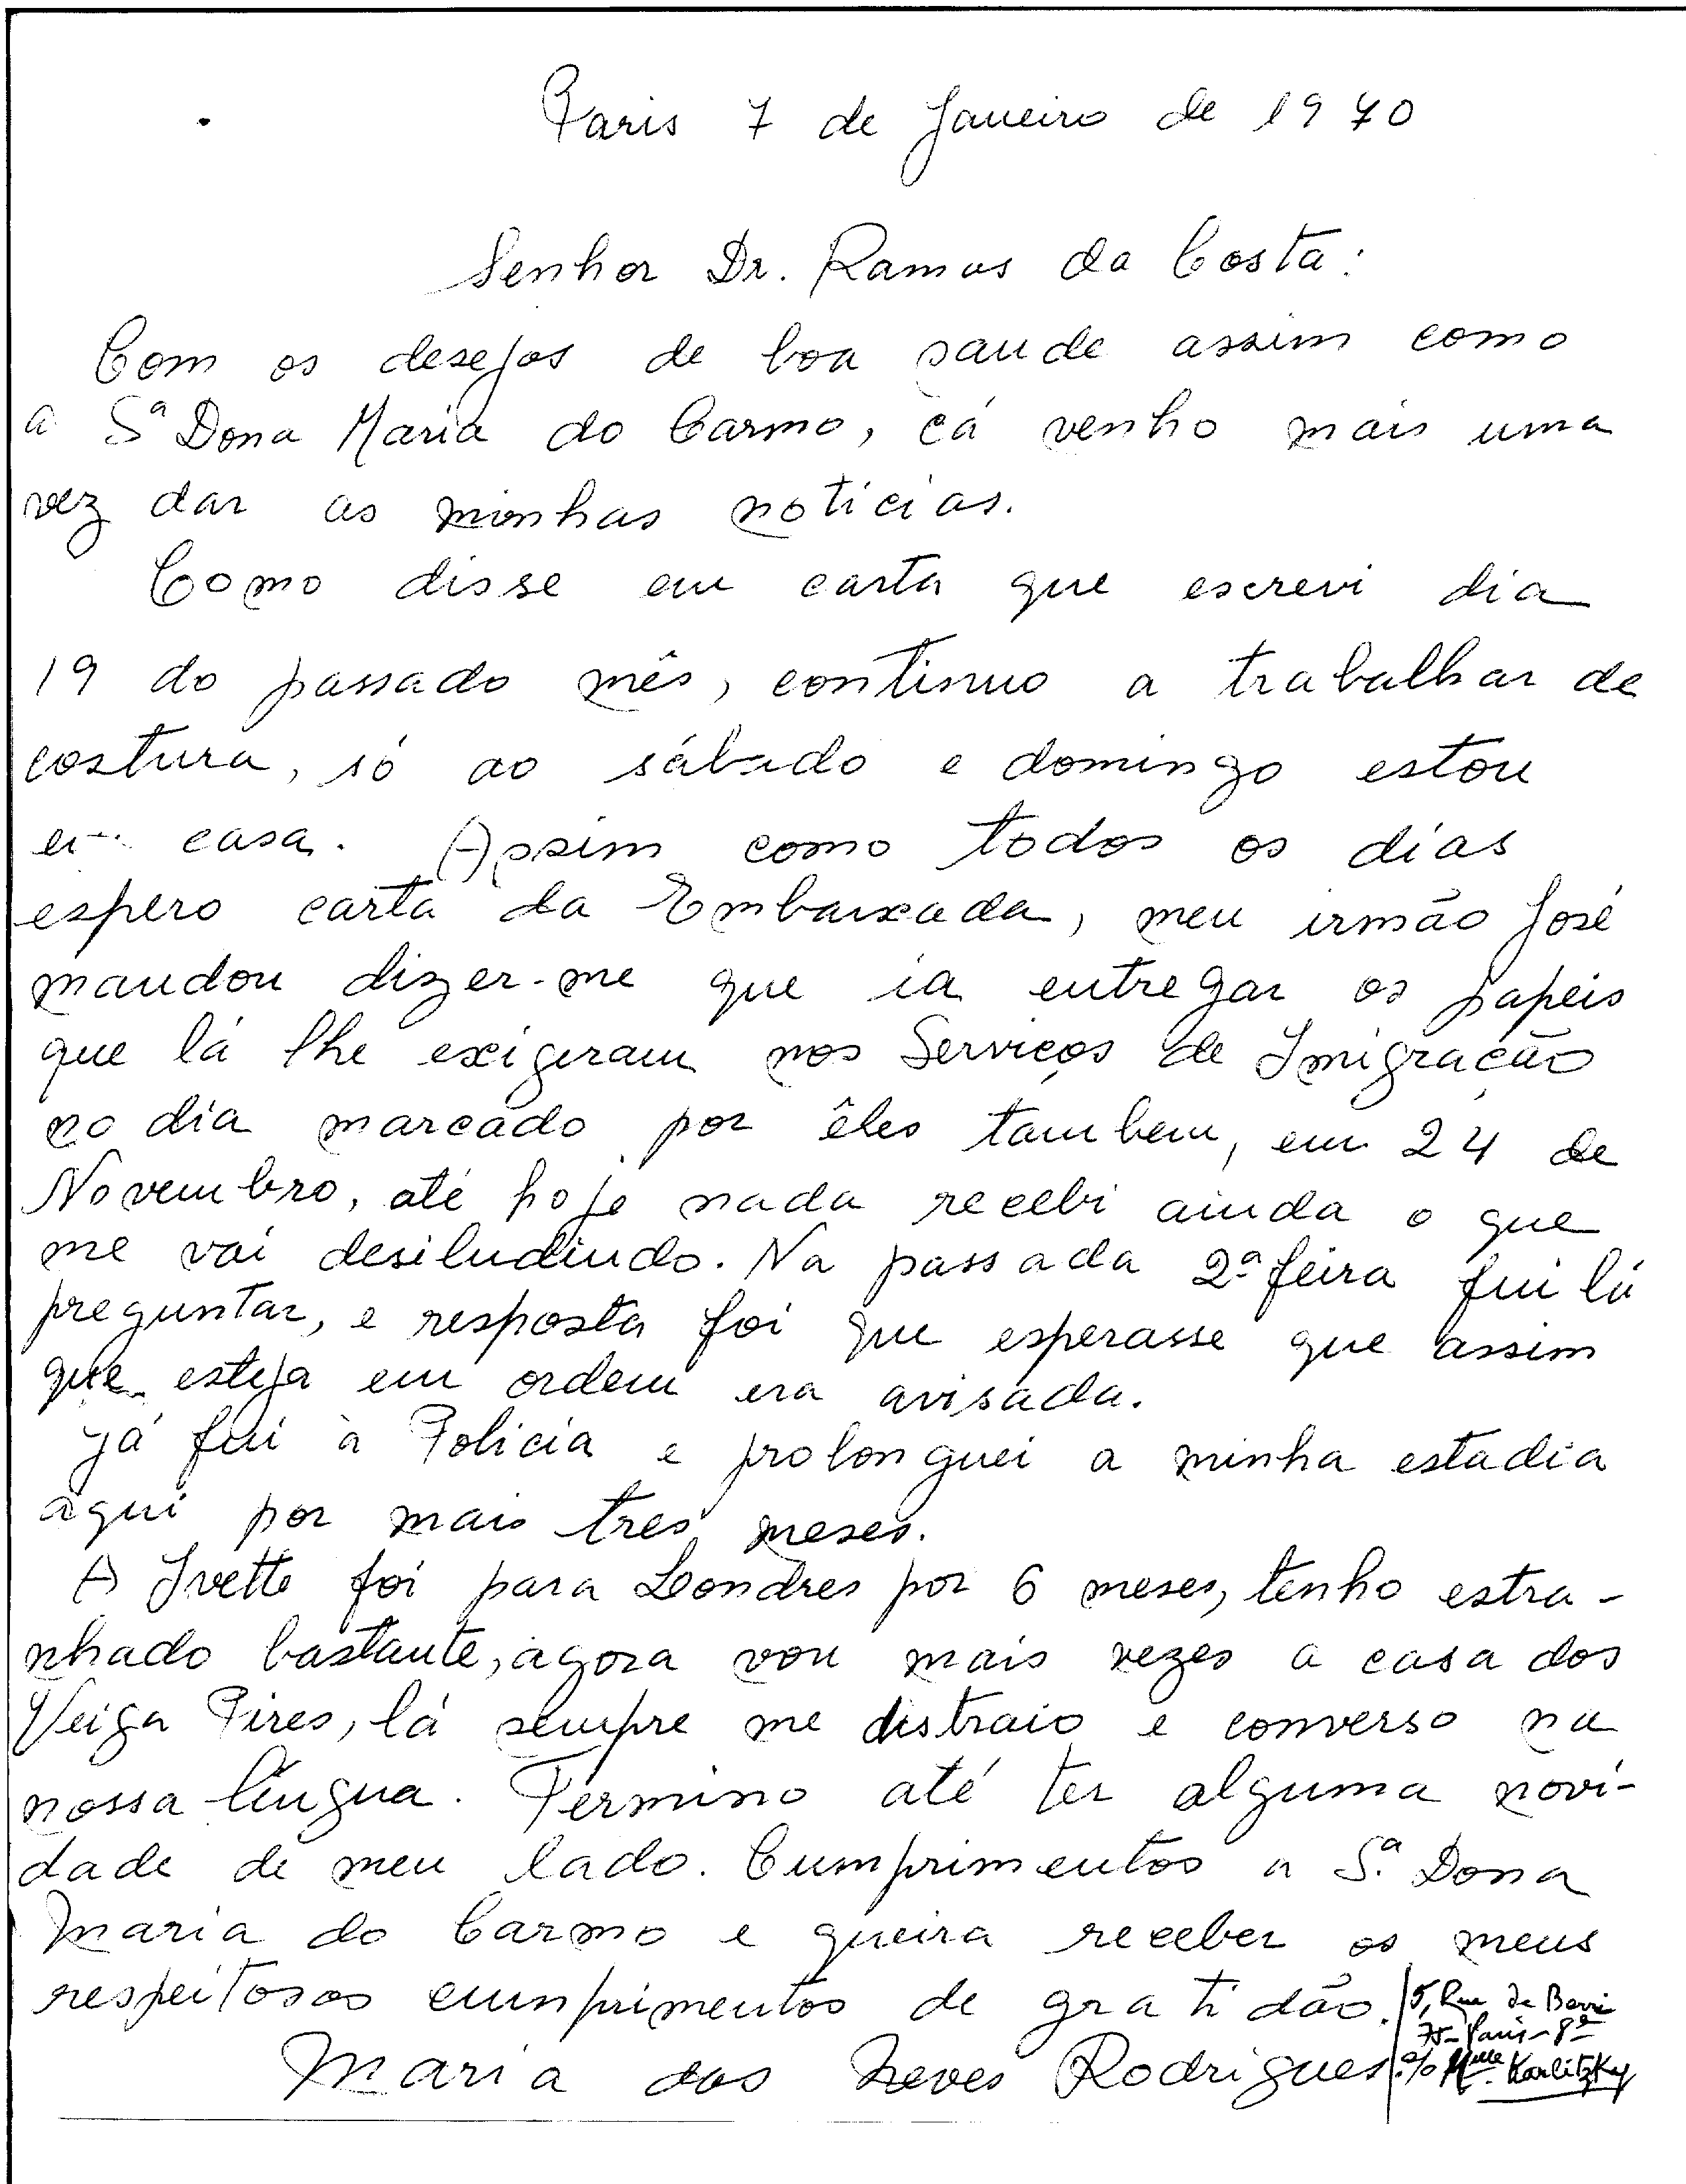 Paris 7 de Janeiro de 1970
Senhor Dr. Ramos da Costa:
Com os desejos de boa saude assim como
a Sª Dona Maria do Carmo, cá venho mais uma
vez dar as minhas noticias.
Como disse em carta que escrevi dia
19 do passado mês, continuo a trabalhar de
costura, só ao sábado e domingo estou
em casa. Assim como todos os dias
espero carta da Embaixada, meu irmão José
mandou dizer-me que ia entregar os papeis
que lá lhe exigeram nos Serviços de Imigração
no dia marcado por êles tambem, em 24 de
Novembro, até hoje nada recebi ainda o que
me vai desiludindo. Na passada 2ª feira fui lá
preguntar, e resposta foi que esperasse que assim
que esteja em ordem era avisada.
Já fui à Policia e prolonguei a minha estadia
aqui por mais tres meses.
A Ivette foi para Londres por 6 meses, tenho estra-
nhado bastante, agora vou mais vezes a casa dos
Veiga Pires, lá sempre me distraio e converso na
nossa lingua. Termino até ter alguma novi-
dade de meu lado. Cumprimentos a S.ª Dona
Maria do Carmo e queira receber os meus
respeitosos cumprimentos de gratidão.
Maria das Neves Rodrigues
5, Rue de Berri
75-Paris-8e
c/o Melle Karlitzky